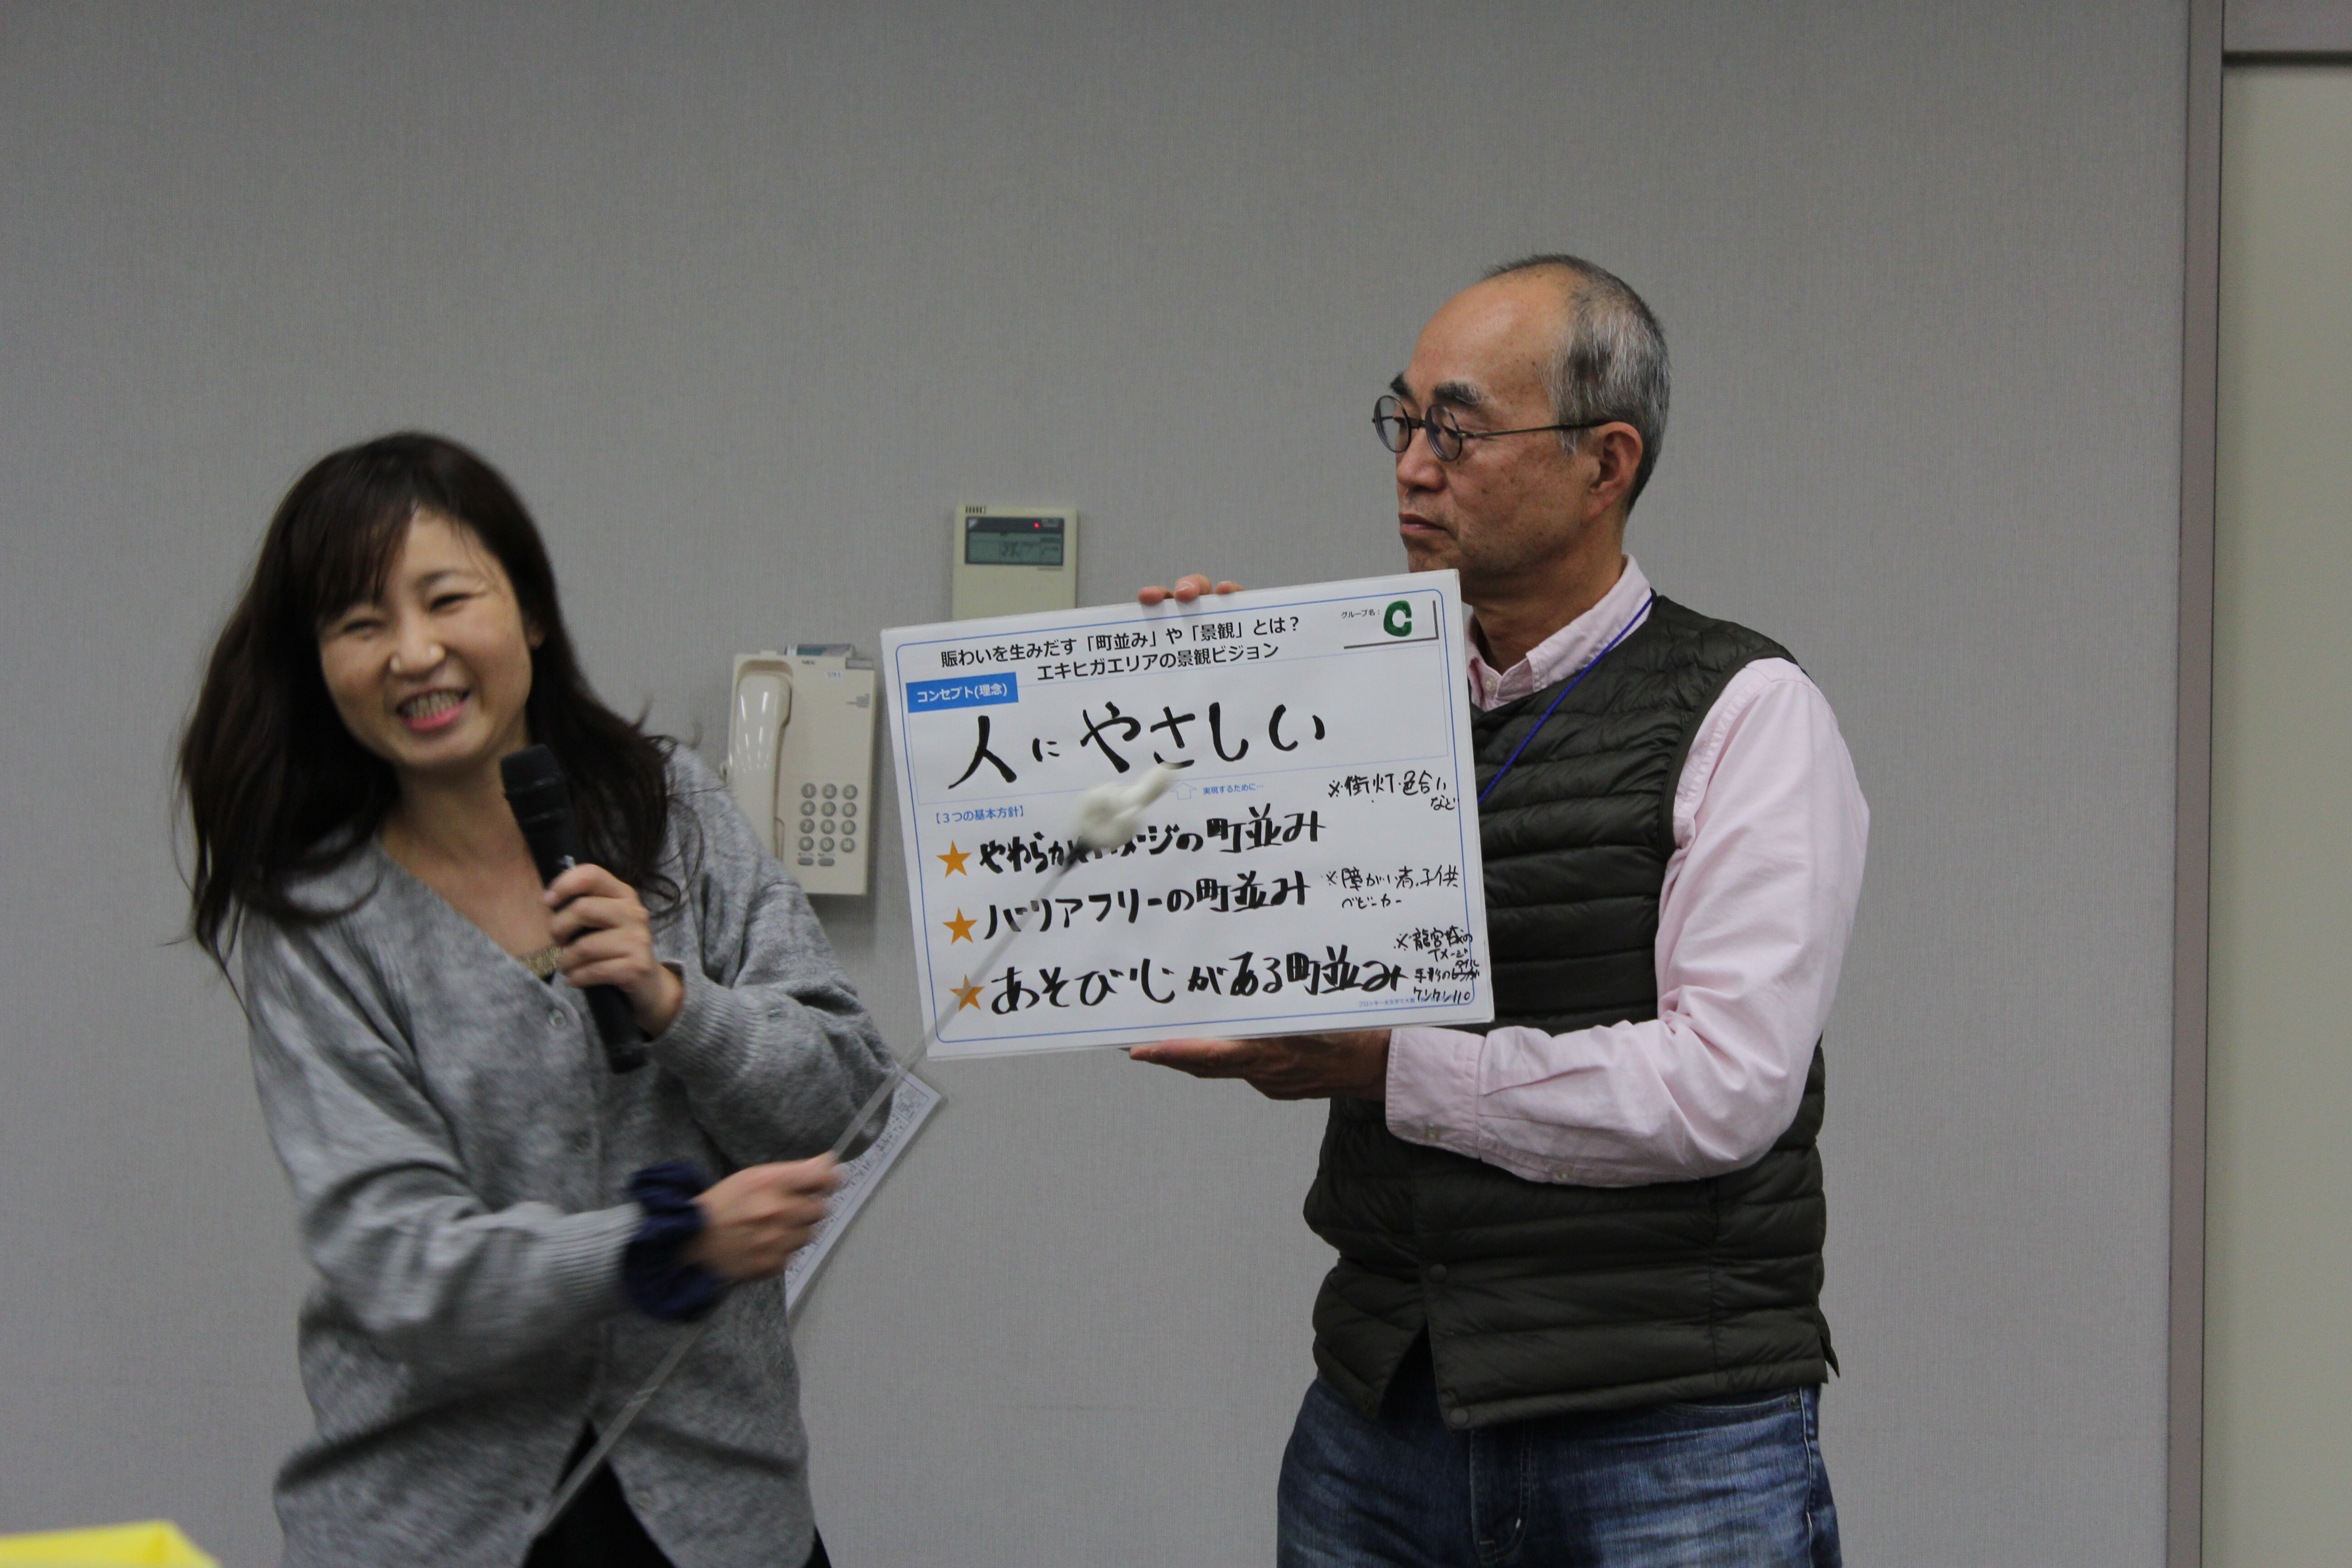 賑わいを生みだす「町並み」や「景観」とは？
グループ名： C
エキヒガエリアの景観ビジョン
コンセプト(理念)
人にやさしい
実現するために…
※街灯・色合い
など
【３つの基本方針】
★ やわらかいイメージの町並み
★ バリアフリーの町並み
※障がい者、子供
ベビーカー
★ あそび心がある町並み
※龍宮城の
イメージ
タイル
手形の
NEC